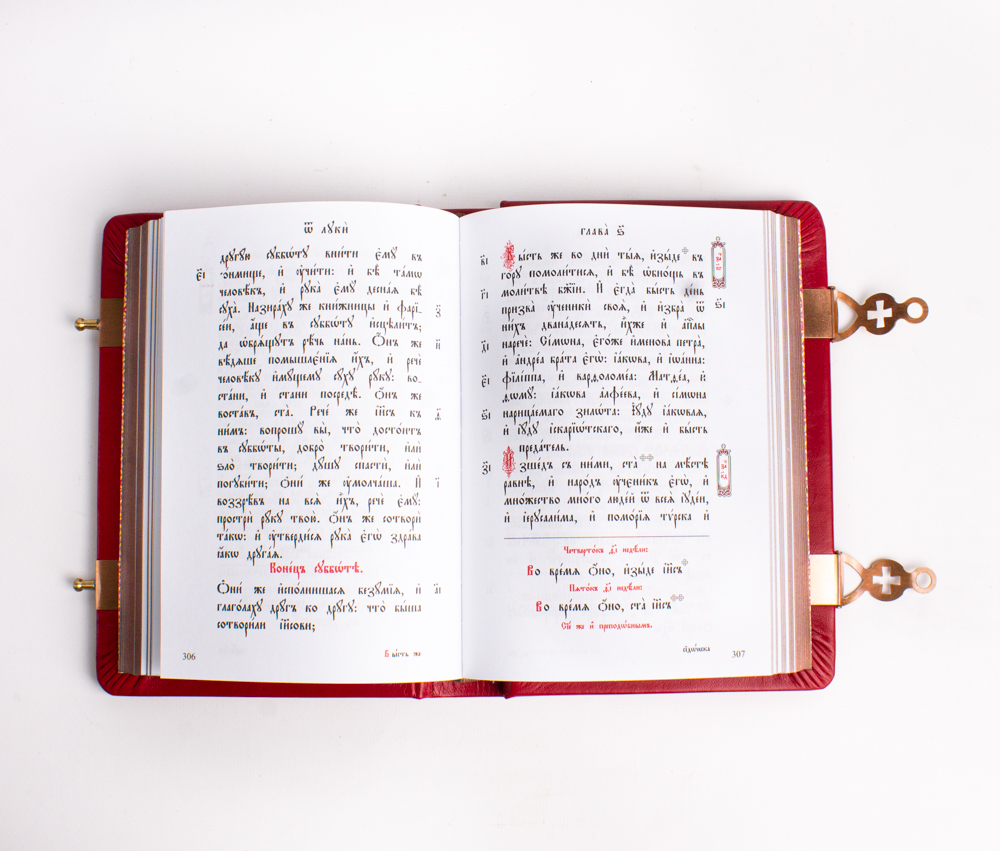 Ѿ ЛꙊКѝ
дрꙋгꙋ́ю сꙋббѡ́тꙋ вни́ти є҆мꙋ̀ въ
со́нмище, и҆ ᲂу҆чи́ти: и҆ бѣ̀ та́мѡ
є҃і
человѣ́къ, и҆ рꙋка̀ є҆мꙋ̀ десна́ѧ бѣ̀
сꙋха̀. Назира́хꙋ же кни́жницы и҆ фарі-
з҃
се́и, а҆́ще въ сꙋббѡ́тꙋ и҆сцѣли́тъ;
да ѡ҆брѧ́щꙋтъ рѣ́чь на́нь. Ѻ҆́нъ же
и҃
вѣ́дѧше помышлє́нїѧ и҆́хъ, и҆ речѐ
человѣ́кꙋ и҆мꙋ́щемꙋ сꙋ́хꙋ рꙋ́кꙋ: во-
ста́ни, и҆ ста́ни посредѣ̀. Ѻ҆́нъ же
воста́въ, ста̀. Рече́ же і҆и҃съ къ
ѳ҃
ни̑мъ: вопрошꙋ̀ вы̀, что̀ досто́итъ
въ сꙋббѡ́ты, добро̀ твори́ти, и҆лѝ
ѕло̀ твори́ти; дꙋ́шꙋ спⷭ҇тѝ, и҆лѝ
погꙋби́ти; Ѻ҆ни́ же ᲂу҆молча́ша. И҆
і҃
воззрѣ́въ на всѧ̀ и҆̀хъ, речѐ є҆мꙋ̀:
прострѝ рꙋ́кꙋ твою̀. Ѻ҆́нъ же сотворѝ
та́кѡ: и҆ ᲂу҆тверди́сѧ рꙋка̀ є҆гѡ̀ здра́ва
ꙗ҆́кѡ дрꙋга́ѧ.
Коне́цъ сꙋббѡ́тѣ.
Ѻ҆ни́ же и҆спо́лнишасѧ безꙋ́мїѧ, и҆
а҃і
глаго́лахꙋ дрꙋ́гъ ко дрꙋ́гꙋ: что̀ бы́ша
сотвори́ли і҆и҃сови;
306
Бы́сть же
ГЛАВА̀ Ѕ҃
Бы́сть же во дни̑ ты̑ѧ, и҆зы́де въ
в҃і
го́рꙋ помоли́тисѧ, и҆ бѣ̀ ѡ҆б̾но́щь въ
моли́твѣ бж҃їи. И҆ є҆гда̀ бы́сть де́нь
г҃і
призва̀ ᲂу҆чн҃кѝ своѧ̑, и҆ и҆збра̀ ѿ
ни́хъ двана́десѧть, и҆̀хже и҆ а҆пⷭ҇лы
наречѐ: Сі́мѡна, є҆го́же и҆менова̀ петра̀,
д҃і
и҆ а҆ндре́а бра́та є҆гѡ̀: і҆а́кѡва, и҆ і҆ѡа́нна:
фїлі́ппа, и҆ варѳоломе́а: Матѳе́а, и҆
є҃і
ѳѡмꙋ̀: і҆а́кѡва а҆лфе́ева, и҆ сі́мѡна
нарица́емаго зилѡ́та: І҆ꙋ́дꙋ і҆а́кѡвлѧ,
ѕ҃і
и҆ і҆ꙋ́дꙋ і҆скарїѡ́тскаго, и҆́же и҆ бы́сть
преда́тель.
И҆зше́дъ съ ни́ми, ста̀ на мѣ́стѣ
з҃і
ра́внѣ, и҆ наро́дъ ᲂу҆чн҃къ є҆гѡ̀, и҆
мно́жество мно́го люде́й ѿ всеѧ̀ і҆ꙋде́и,
и҆ і҆ерⷭ҇ли́ма, и҆ помо́рїѧ тѵ́рска и҆
Четверто́къ д҃і недѣ́ли:
Во вре́мѧ ѻ҆́но, и҆зы́де і҆и҃съ
Пѧто́къ д҃і недѣ́ли:
Во вре́мѧ ѻ҆́но, ста̀ і҆и҃съ
Сїѐ же и҆ преподѡ́бнымъ.
сїдѡ́нска
307